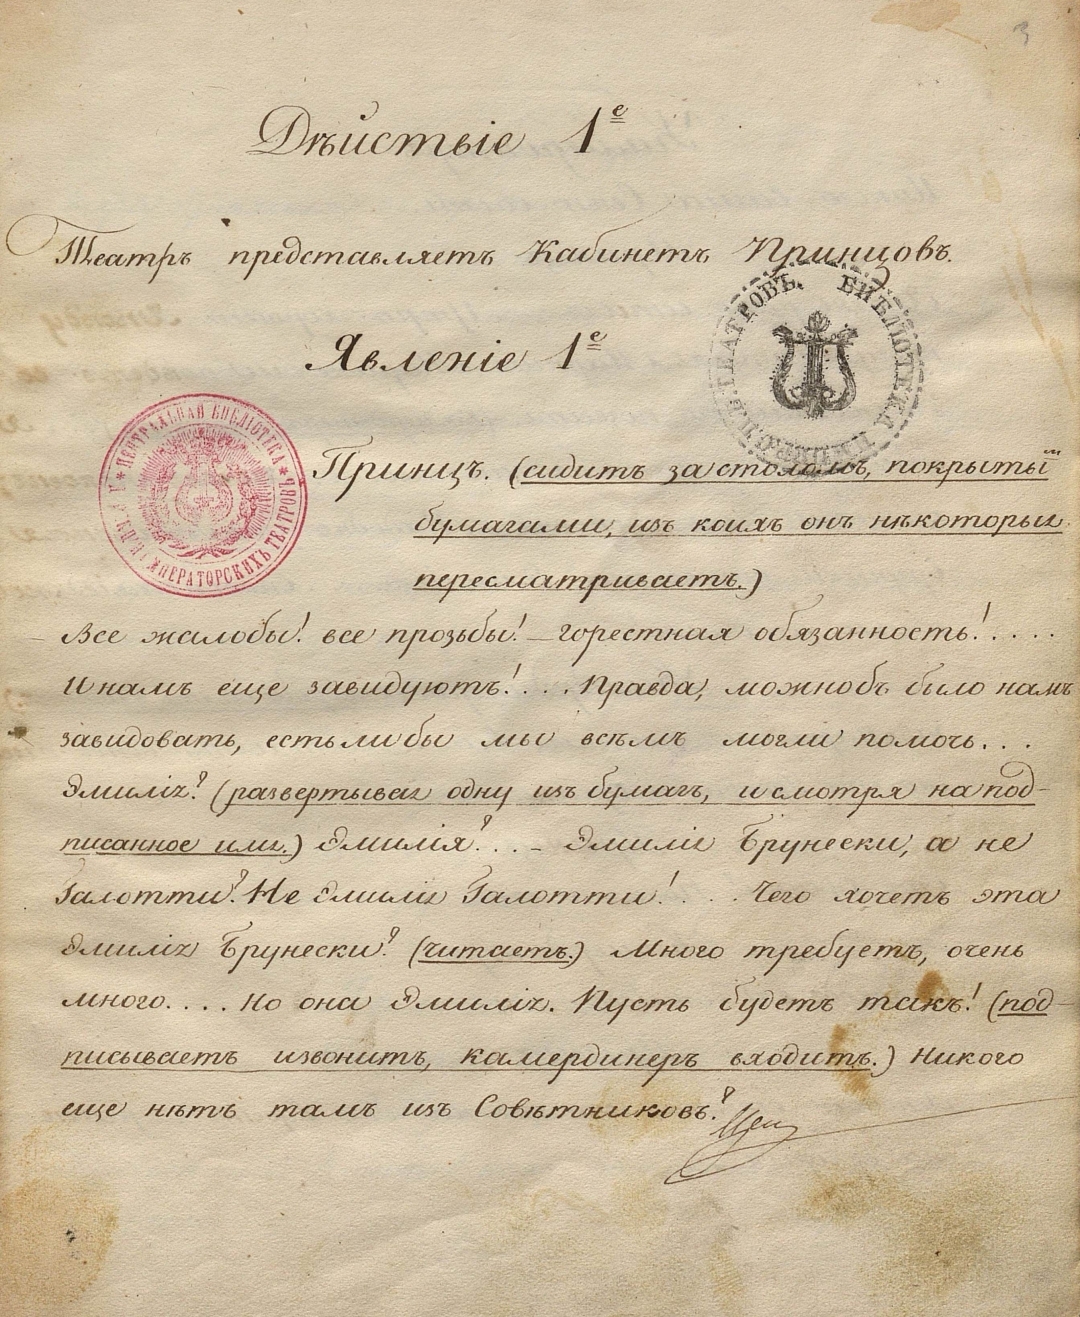 3
Дѣйствіе 1е
Театръ представляетъ Кабинетъ Принцовъ.
Явленіе 1е
БИБЛІОТЕКА ТЕАТРОВЪ.
ЦЕНТРАЛЬНАЯ БИБЛІОТЕКА ИМПЕРАТОРСКИХЪ ТЕАТРОВЪ
Принцъ. (сидитъ за столомъ, покрытымъ
бумагами, изъ коихъ онъ нѣкоторыя
пересматриваетъ.)
Все жалобы! все прозьбы! – горестная обязанность!....
И намъ еще завидуютъ!... Правда, можнобъ было намъ
завидовать, естьлибы мы всѣмъ могли помочь...
Эмилія? (развертывая одну изъ бумагъ, и смотря на под-
писанное имя.) Эмилія?... – Эмилія Брунески, а не
Галотти? Не Эмилія Галотти!.... Чего хочетъ эта
Эмилія Брунески? (читаетъ.) Много требуетъ, очень
много.... но она Эмилія. Пусть будетъ такъ! (под-
писываетъ и звонитъ, камердинеръ входитъ.) Никого
еще нѣтъ тамъ изъ Совѣтниковъ?